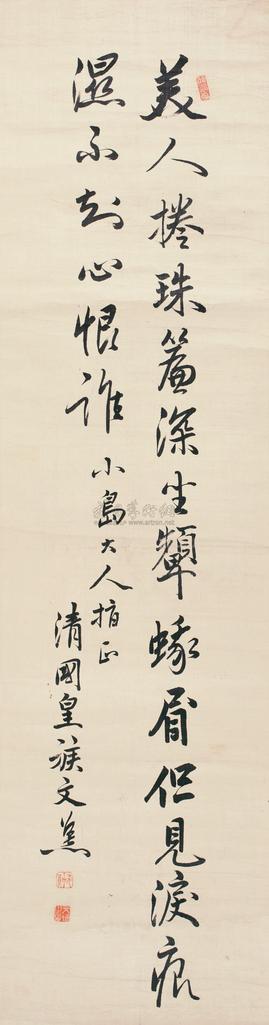 美人捲珠簾深坐顰蛾眉但見淚痕
濕不知心恨誰 小島大人指正
清國皇族文
www.artron.net